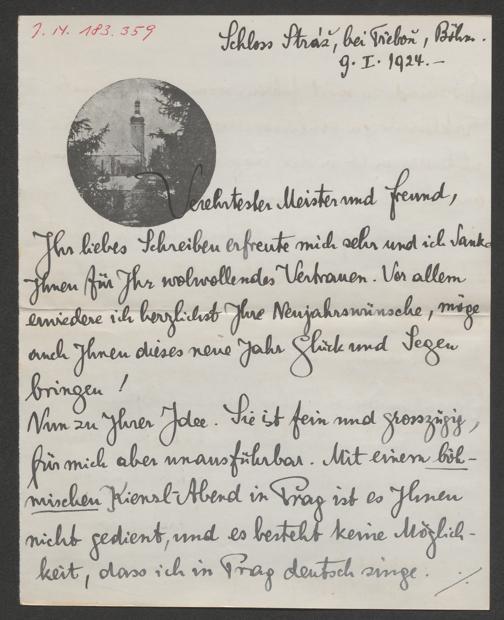 J. N. 183.359
Schloss Stráž, bei Třeboň, Böhm.
9. I. 1924.-
Verehrtester Meister und Freund,
Ihr liebes Schreiben erfreute mich sehr und ich danke
Ihnen für Ihr wolwollendes Vertrauen. Vor allem
erwiedere ich herzlichst Ihre Neujahrswünsche, möge
auch Ihnen dieses neue Jahr Glück und Segen
bringen!
Nun zu Ihrer Idee. Sie ist fein und grosszügig,
für mich aber unausführbar. Mit einem böh-
mischen Kienzl-Abend in Prag ist es Ihnen
nicht gedient, und es besteht keine Möglich-
keit, dass ich in Prag deutsch singe. ./.